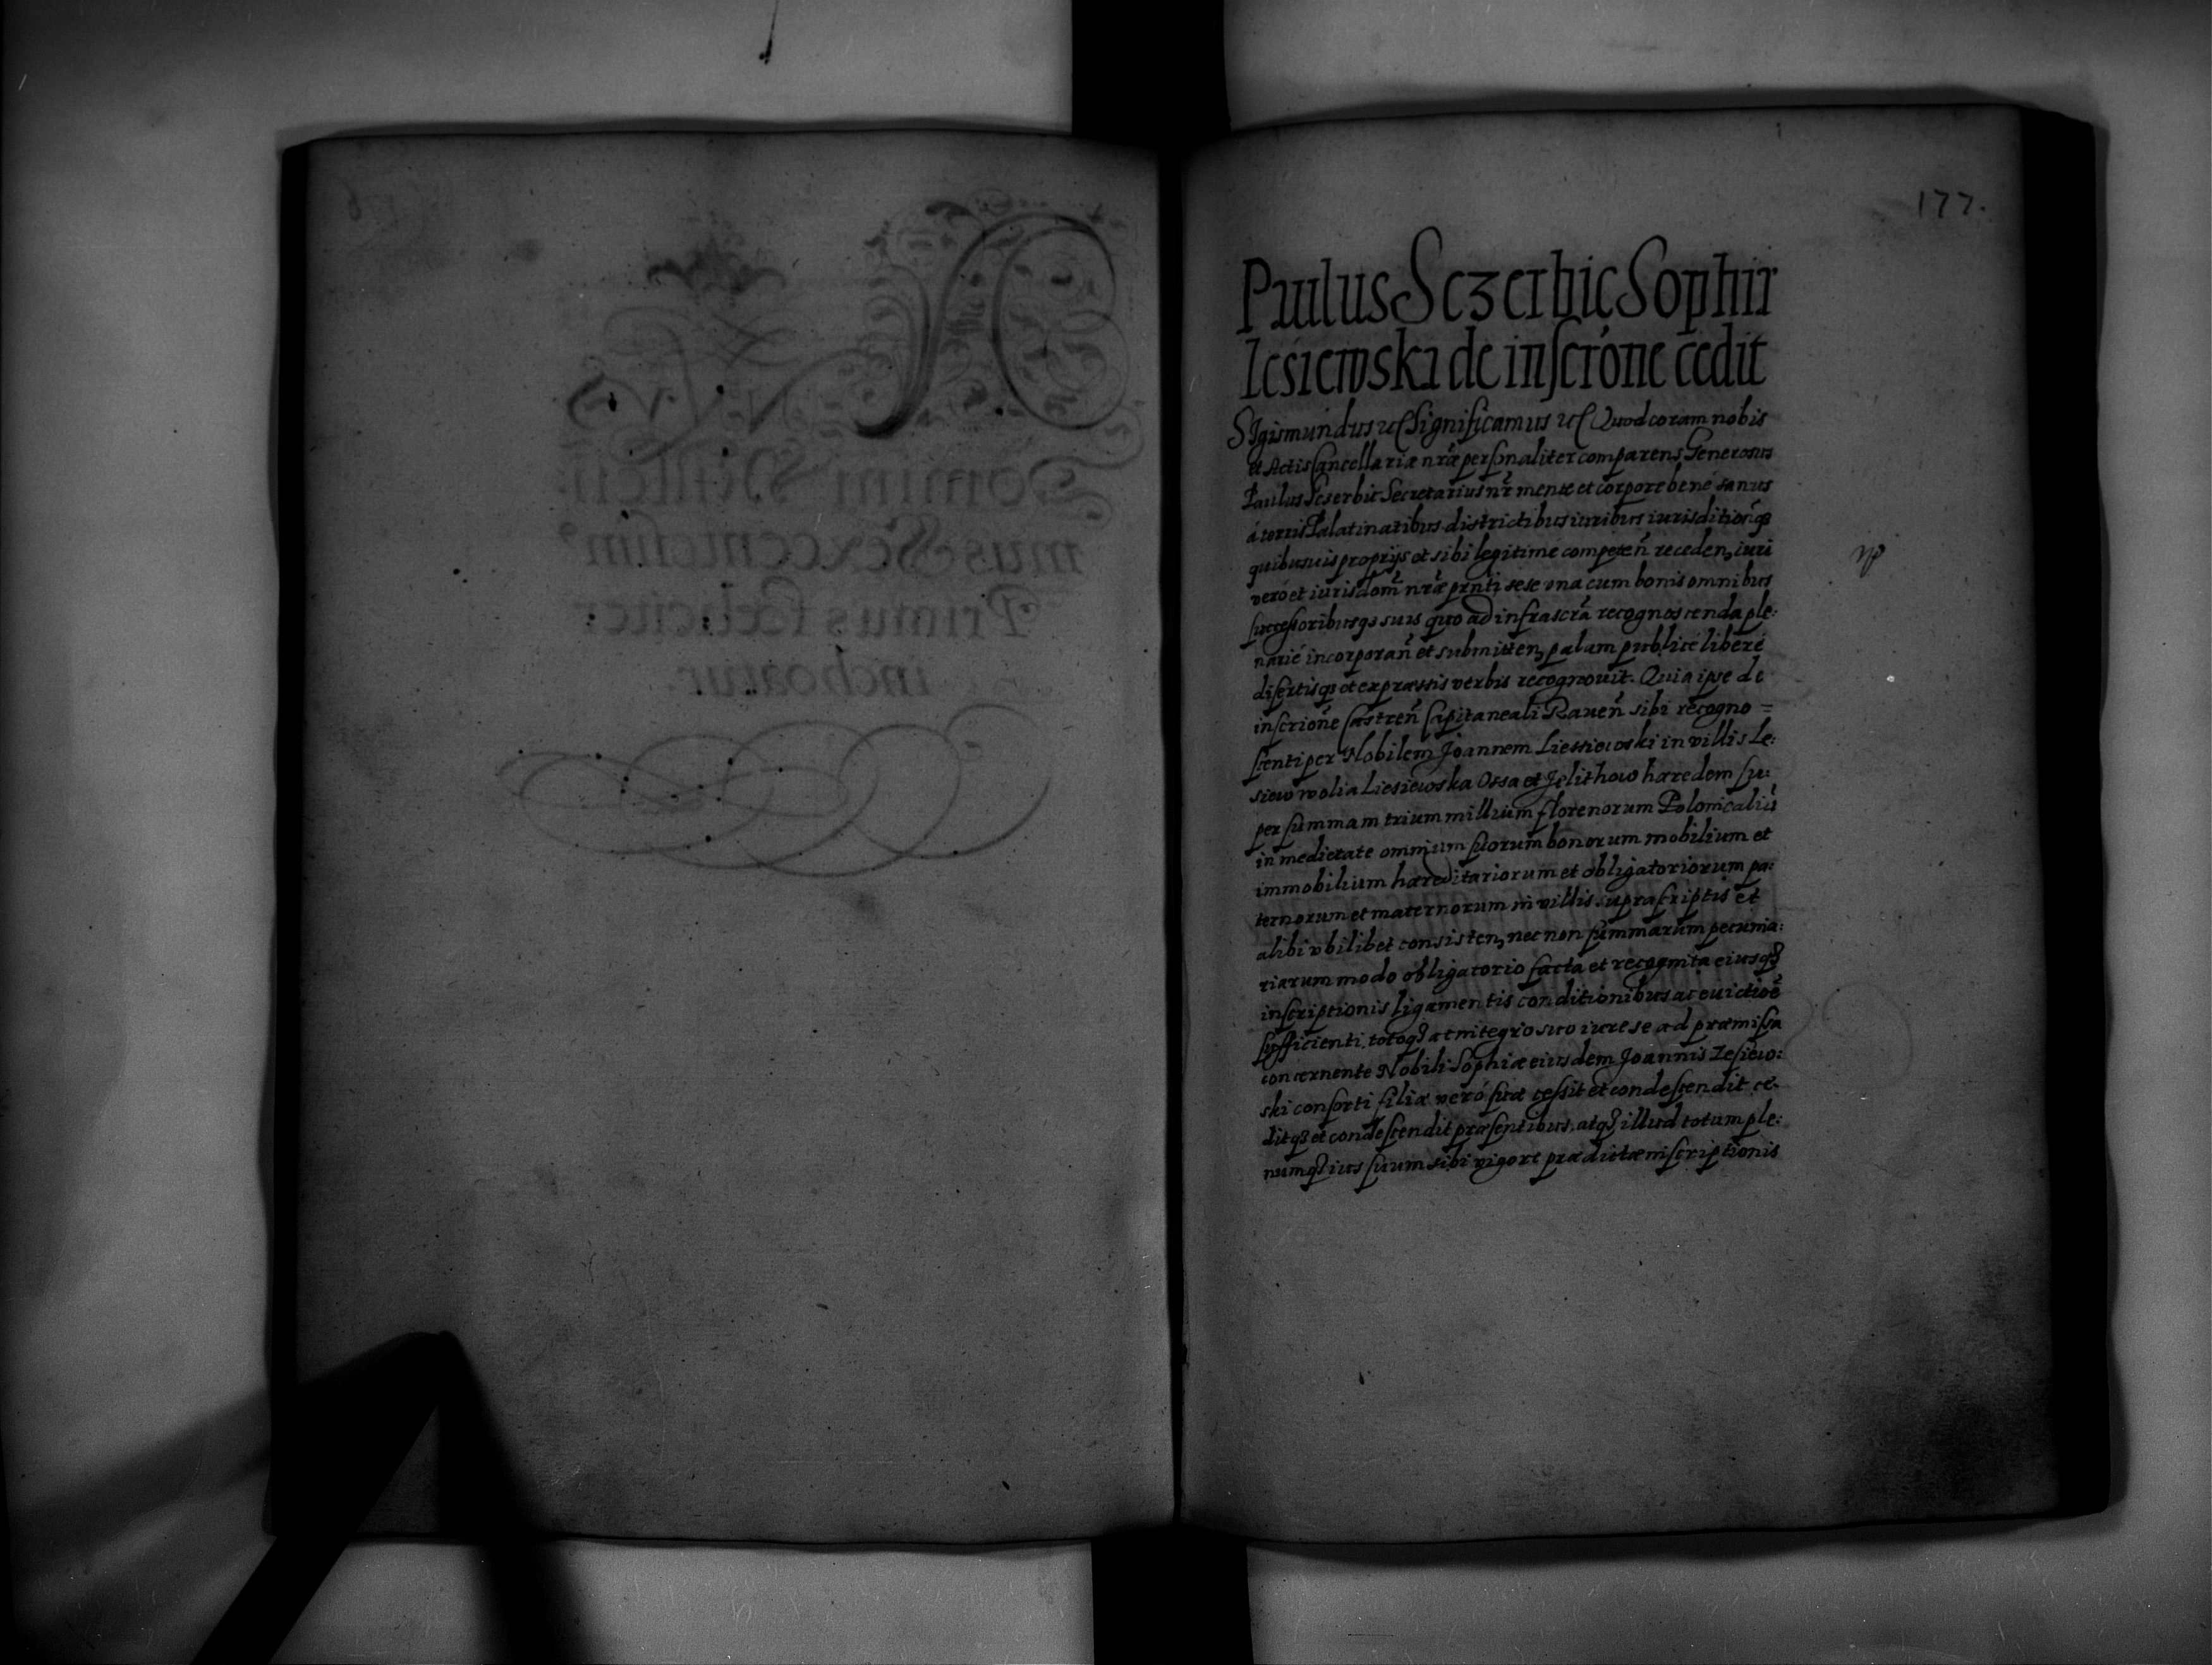 177.
Paulus Sczerbic Sophiæ
Lesiewski de inscrõne cedit
Sigismundus etc Significamus etc Quod coram nobis
et Actis Cancellariæ nr̃æ personaliter comparens Generosus
Paulus Sczerbic Secretarius nr̃ mente et corpore bene sanus
á terris Palatinatibus districtibus iuribus iurisditionq̃
quibusuis proprijs et sibi legitimé competeñ receden, iuri
veró et iurisdom̃ nr̃æ prnti sese vna cum bonis omnibus
successoribusqȝ suis quo ad infrascrã recognoscenda ple:
narié incorporañ et submitten, palam publicé liberé
disertisqȝ et expressis verbis recognouit. Quia ipse de
inscrione Castreñ Capitaneali Raueñ sibi recogno =
scenti per Nobilem Joannem Liessiewski in villis Le:
siew wolia Liesiewska Ossa et Jelithow hæredem su:
per summam trium millium florenorum Polonicaliũ
in medietate omnium suorum bonorum mobilium et
immobilium hæreditariorum et obligatoriorum pa:
ternorum et maternorum in villis suprascriptis et
alibi vbilibet consisten, nec non summarum pecunia:
riarum modo obligatorio facta et recognita eiusqȝ
inscriptionis ligamentis conditionibus ac euictioẽ
sufficienti, totoqȝ ac integro suo iure se ad præmissa
concernente Nobili Sophiæ eiusdem Joannis Lesiew:
ski consorti filiæ veró suæ cessit et condescendit ce:
ditqȝ et condescendit præsentibus. atqȝ illud totum ple:
numqȝ ius suum sibi vigore prædictæ inscriptionis